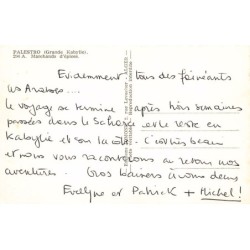 PALESTRO (Grande Kabylie)
204 A. Marchands d'épices.
Evidemment, tous des fainéants
les Arabes...
le voyage se termine après trois semaines
passées dans le Sahara et le reste en
Kabylie et son la côte. C'est très beau
et nous vous raconterons au retour nos
aventures. Gros baisers à vous deux
Evelyne et Patrick + Michel!